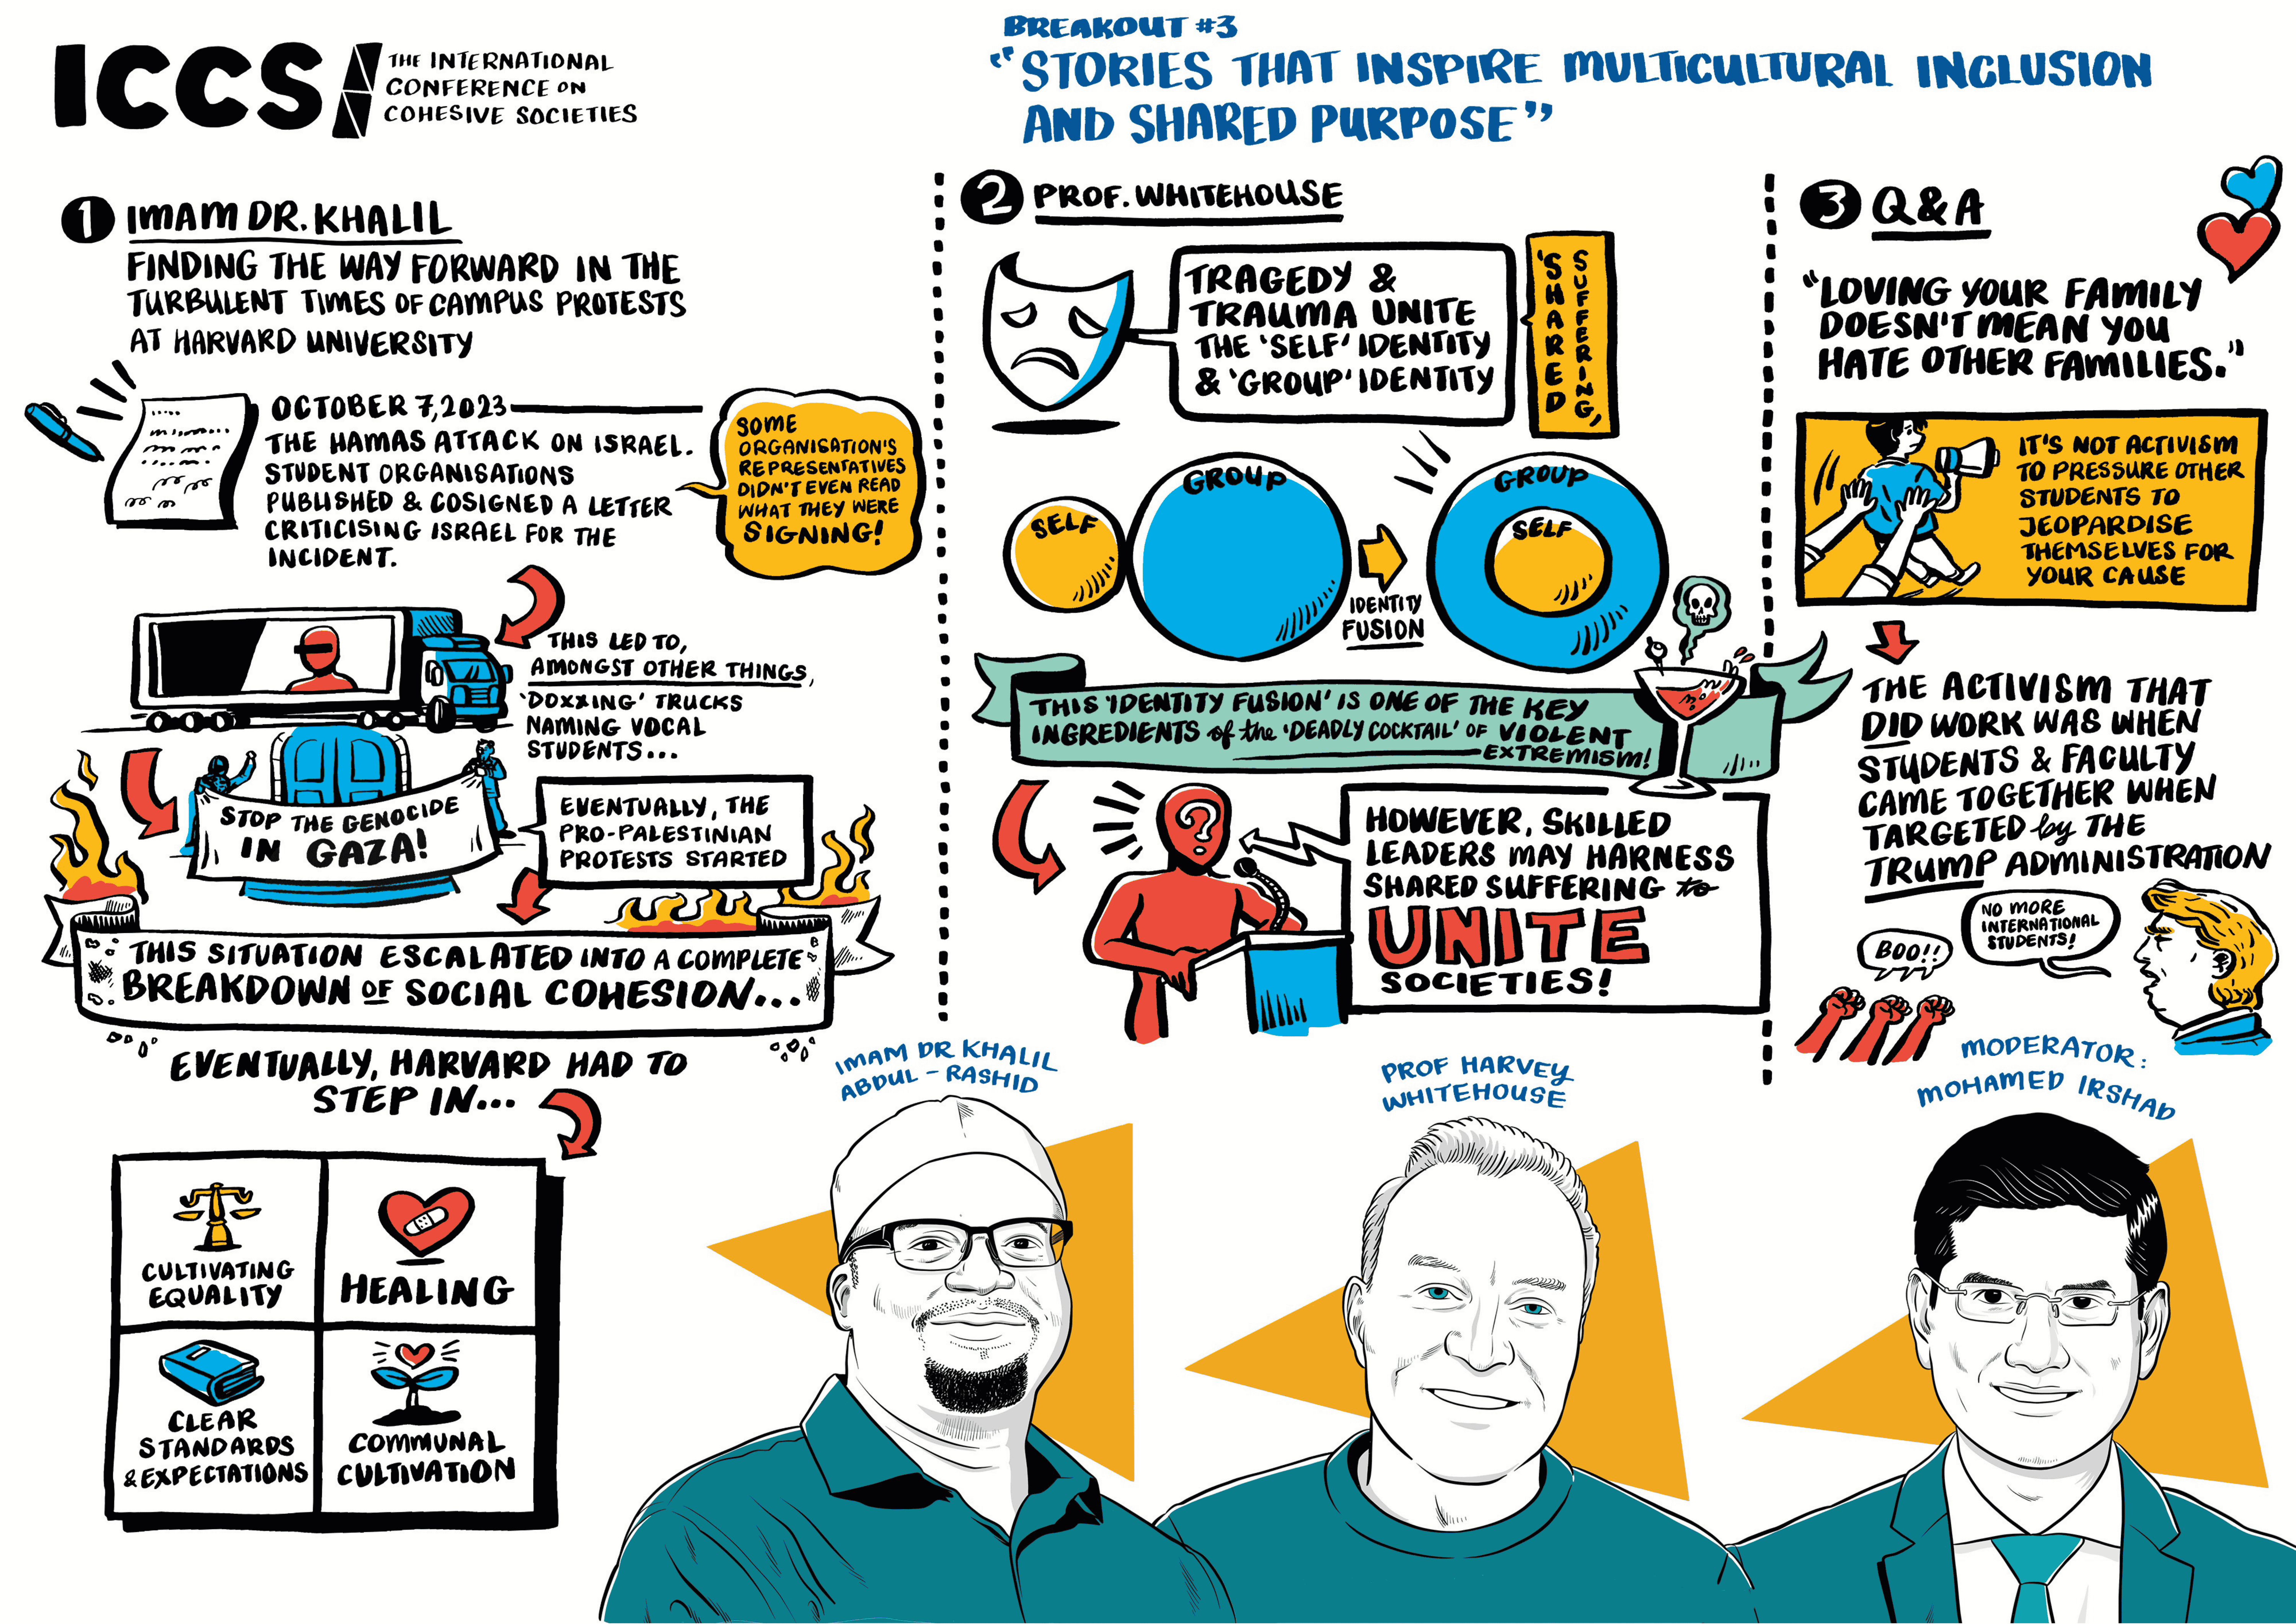 ICCS
THE INTERNATIONAL
CONFERENCE ON
COHESIVE SOCIETIES
BREAKOUT #3
"STORIES THAT INSPIRE MULTICULTURAL INCLUSION
AND SHARED PURPOSE"
1 IMAM DR. KHALIL
FINDING THE WAY FORWARD IN THE
TURBULENT TIMES OF CAMPUS PROTESTS
AT HARVARD UNIVERSITY
OCTOBER 7, 2023
THE HAMAS ATTACK ON ISRAEL.
STUDENT ORGANISATIONS
PUBLISHED & COSIGNED A LETTER
CRITICISING ISRAEL FOR THE
INCIDENT.
SOME
ORGANISATION'S
REPRESENTATIVES
DIDN'T EVEN READ
WHAT THEY WERE
SIGNING!
THIS LED TO,
AMONGST OTHER THINGS,
'DOXXING' TRUCKS
NAMING VOCAL
STUDENTS...
STOP THE GENOCIDE
IN GAZA!
EVENTUALLY, THE
PRO-PALESTINIAN
PROTESTS STARTED
THIS SITUATION ESCALATED INTO A COMPLETE
BREAKDOWN OF SOCIAL COHESION...
EVENTUALLY, HARVARD HAD TO
STEP IN...
CULTIVATING
EQUALITY
HEALING
CLEAR
STANDARDS
& EXPECTATIONS
COMMUNAL
CULTIVATION
2 PROF. WHITEHOUSE
TRAGEDY &
TRAUMA UNITE
THE 'SELF' IDENTITY
& 'GROUP' IDENTITY
'SHARED
SUFFERING,
SELF
GROUP
IDENTITY
FUSION
GROUP
SELF
THIS 'IDENTITY FUSION' IS ONE OF THE KEY
INGREDIENTS of the 'DEADLY COCKTAIL' OF VIOLENT
EXTREMISM!
?
HOWEVER, SKILLED
LEADERS MAY HARNESS
SHARED SUFFERING to
UNITE
SOCIETIES!
3 Q&A
"LOVING YOUR FAMILY
DOESN'T MEAN YOU
HATE OTHER FAMILIES."
IT'S NOT ACTIVISM
TO PRESSURE OTHER
STUDENTS TO
JEOPARDISE
THEMSELVES FOR
YOUR CAUSE
THE ACTIVISM THAT
DID WORK WAS WHEN
STUDENTS & FACULTY
CAME TOGETHER WHEN
TARGETED by THE
TRUMP ADMINISTRATION
BOO!!
NO MORE
INTERNATIONAL
STUDENTS!
IMAM DR KHALIL
ABDUL-RASHID
PROF HARVEY
WHITEHOUSE
MODERATOR:
MOHAMED IRSHAD